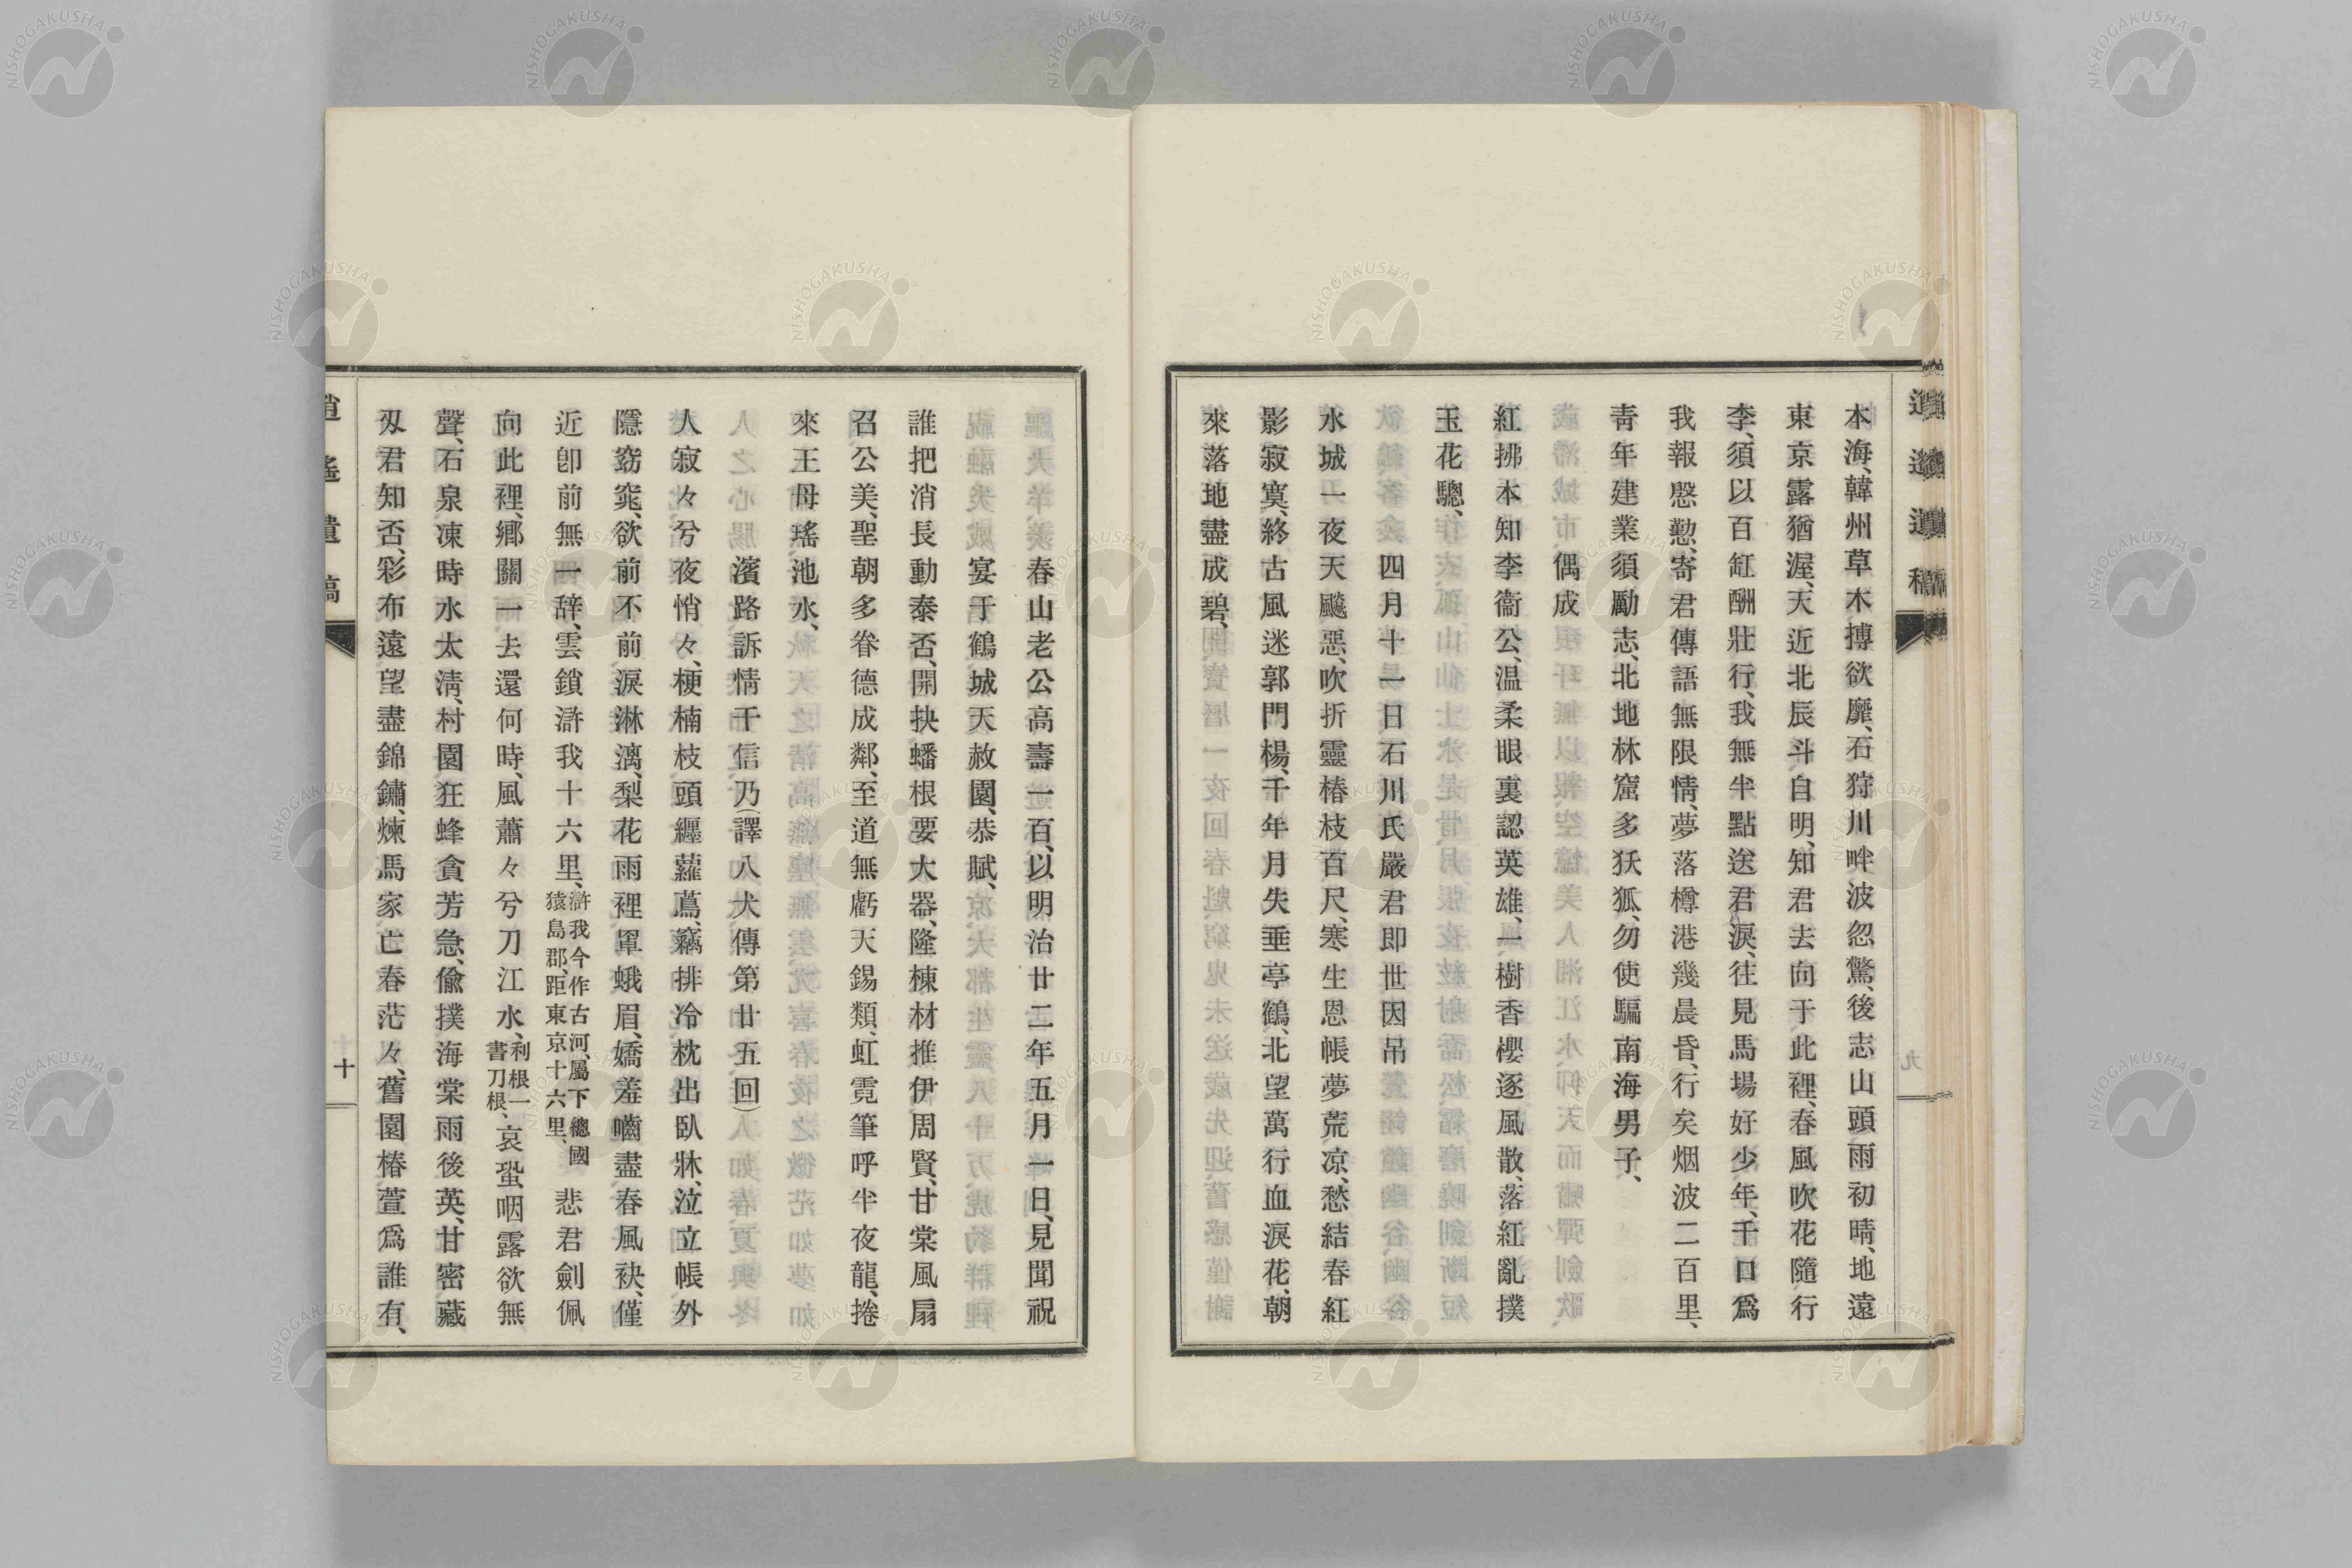 逍遙遺稿
本海、韓州草木搏欲靡、石狩川畔波忽驚、後志山頭雨初晴、地遠
東京露猶渥、天近北辰斗自明、知君去向于此裡、春風吹花隨行
李、須以百缸酬壯行、我無半點送君淚、往見馬場好少年、千口爲
我報慇懃、寄君傳語無限情、夢落樽港幾晨昏、行矣烟波二百里、
靑年建業須勵志、北地林窟多妖狐、勿使騙南海男子、
偶成
紅拂本知李衞公、温柔眼裏認英雄、一樹香櫻逐風散、落紅亂撲
玉花驄、
四月十一日石川氏嚴君即世因吊
水城一夜天颷惡、吹折靈椿枝百尺、寒生恩帳夢荒凉、愁結春紅
影寂寞、終古風迷郭門楊、千年月失垂亭鶴、北望萬行血淚花、朝
來落地盡成碧、
春山老公高壽一百、以明治廿二年五月一日、見聞祝
宴于鶴城天赦園、恭賦、
誰把消長動泰否、開抉蟠根要大器、隆棟材推伊周賢、甘棠風扇
召公美、聖朝多眷德成鄰、至道無虧天錫類、虹霓筆呼半夜龍、捲
來王母瑤池水、
濱路訴情于信乃(譯八犬傳第廿五回)
人寂々兮夜悄々、梗楠枝頭纒蘿蔦、竊排冷枕出臥牀、泣立帳外
隱窈窕、欲前不前淚淋漓、梨花雨裡罩蛾眉、嬌羞嚙盡春風袂、僅
近卽前無一辞、雲鎖滸我十六里、滸我今作古河、屬下總國猿島郡、距東京十六里、悲君劍佩
向此裡、鄕關一去還何時、風蕭々兮刀江水、利根一書刀根、哀蛩咽露欲無
聲、石泉凍時水太淸、村園狂蜂貪芳急、偸撲海棠雨後英、甘密藏
刄君知否、彩布遠望盡錦鏽、煉馬家亡春茫々、舊園椿萱爲誰有、
逍遙遺稿
十